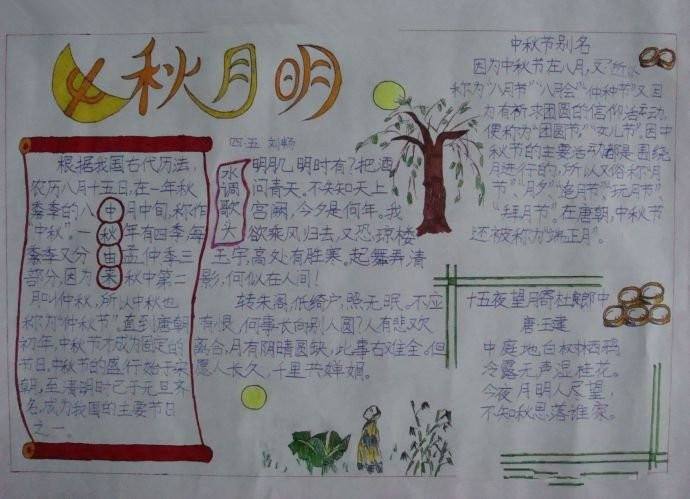 中秋月明
四.五 刘畅
根据我国古代历法,
农历八月十五日,在一年秋
季季的八中月中旬,称作
"中秋"。一秋年有四季,每
季又分由孟、仲、季三
部分,因为来秋中第二
月叫仲秋,所以中秋也
称为"仲秋节",直到唐朝
初年,中秋节才成为固定的
节日,中秋节的盛行始于宋
朝,至清明时已于元旦齐
名,成为我国的主要节日
之一。
水调歌头
明肌明时有?把酒
问青天。不知天上
宫阙,今夕是何年。我
欲乘风归去,又恐琼楼
玉宇,高处有胜寒。起舞弄清
影,何似在人间!
转朱阁,低绮户,照无眠。不应
有恨,何事长向别人圆?人有悲欢
离合,月有阴晴圆缺,此事古难全。但
愿人长久,千里共婵娟。
中秋节别名
因为中秋节在八月,又所以
称为"八月节""月会""仲秋节"又因
为有祈求团圆的信仰活动,
便称为"团圆节""女儿节"。因中
秋节的主要活动都是围绕
月进行的,所以又俗称"月
节""月夕""追月节""玩月节"、
"拜月节"。在唐朝,中秋节
还被称为"端正月"。
十五夜望月寄杜郎中
唐.王建
中庭地白树栖鸦
冷露无声湿桂花。
今夜月明人尽望,
不知秋思落谁家。